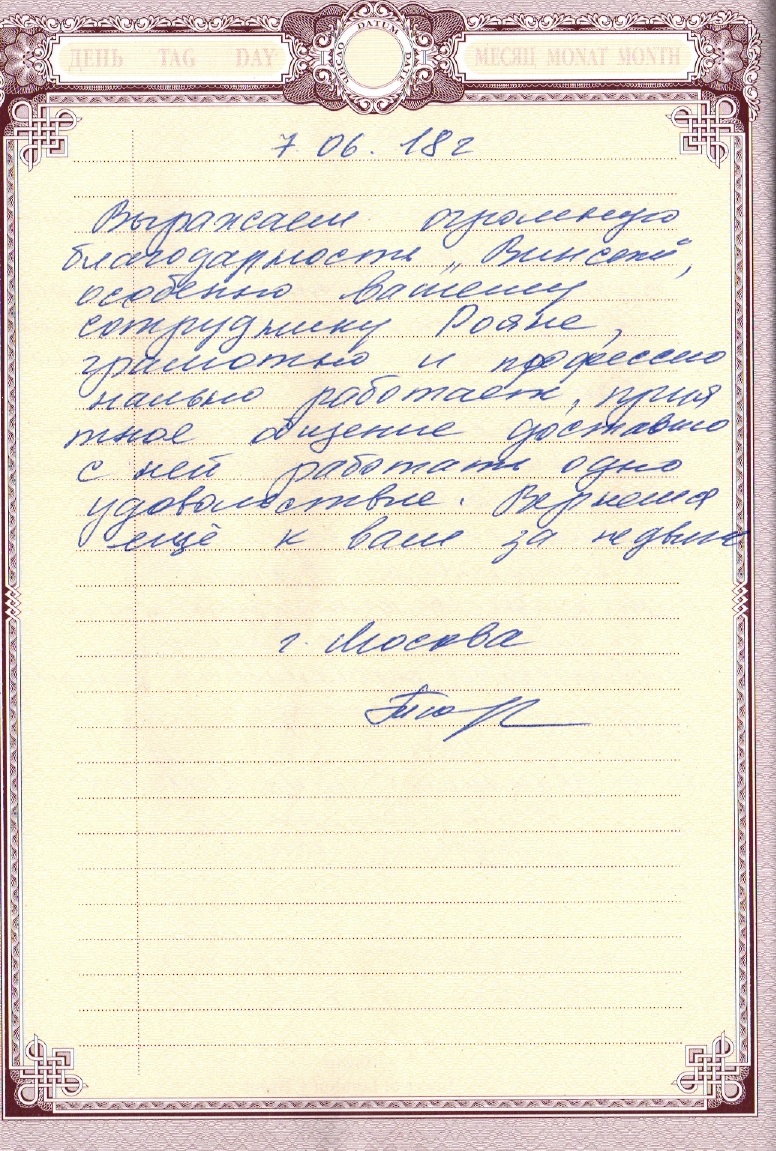 ДЕНЬ TAG DAY
ЧИСЛО DATUM DATE
МЕСЯЦ MONAT MONTH
7 06. 18г
Выражаем огромную
благодарность „Винсент",
особенно вашему
сотруднику Рояне,
грамотно и профессио
нально работает, прия
тное общение доставило
с ней работать одно
удовольствие. Вернемся
ещё к вам за недвиж
г. Москва